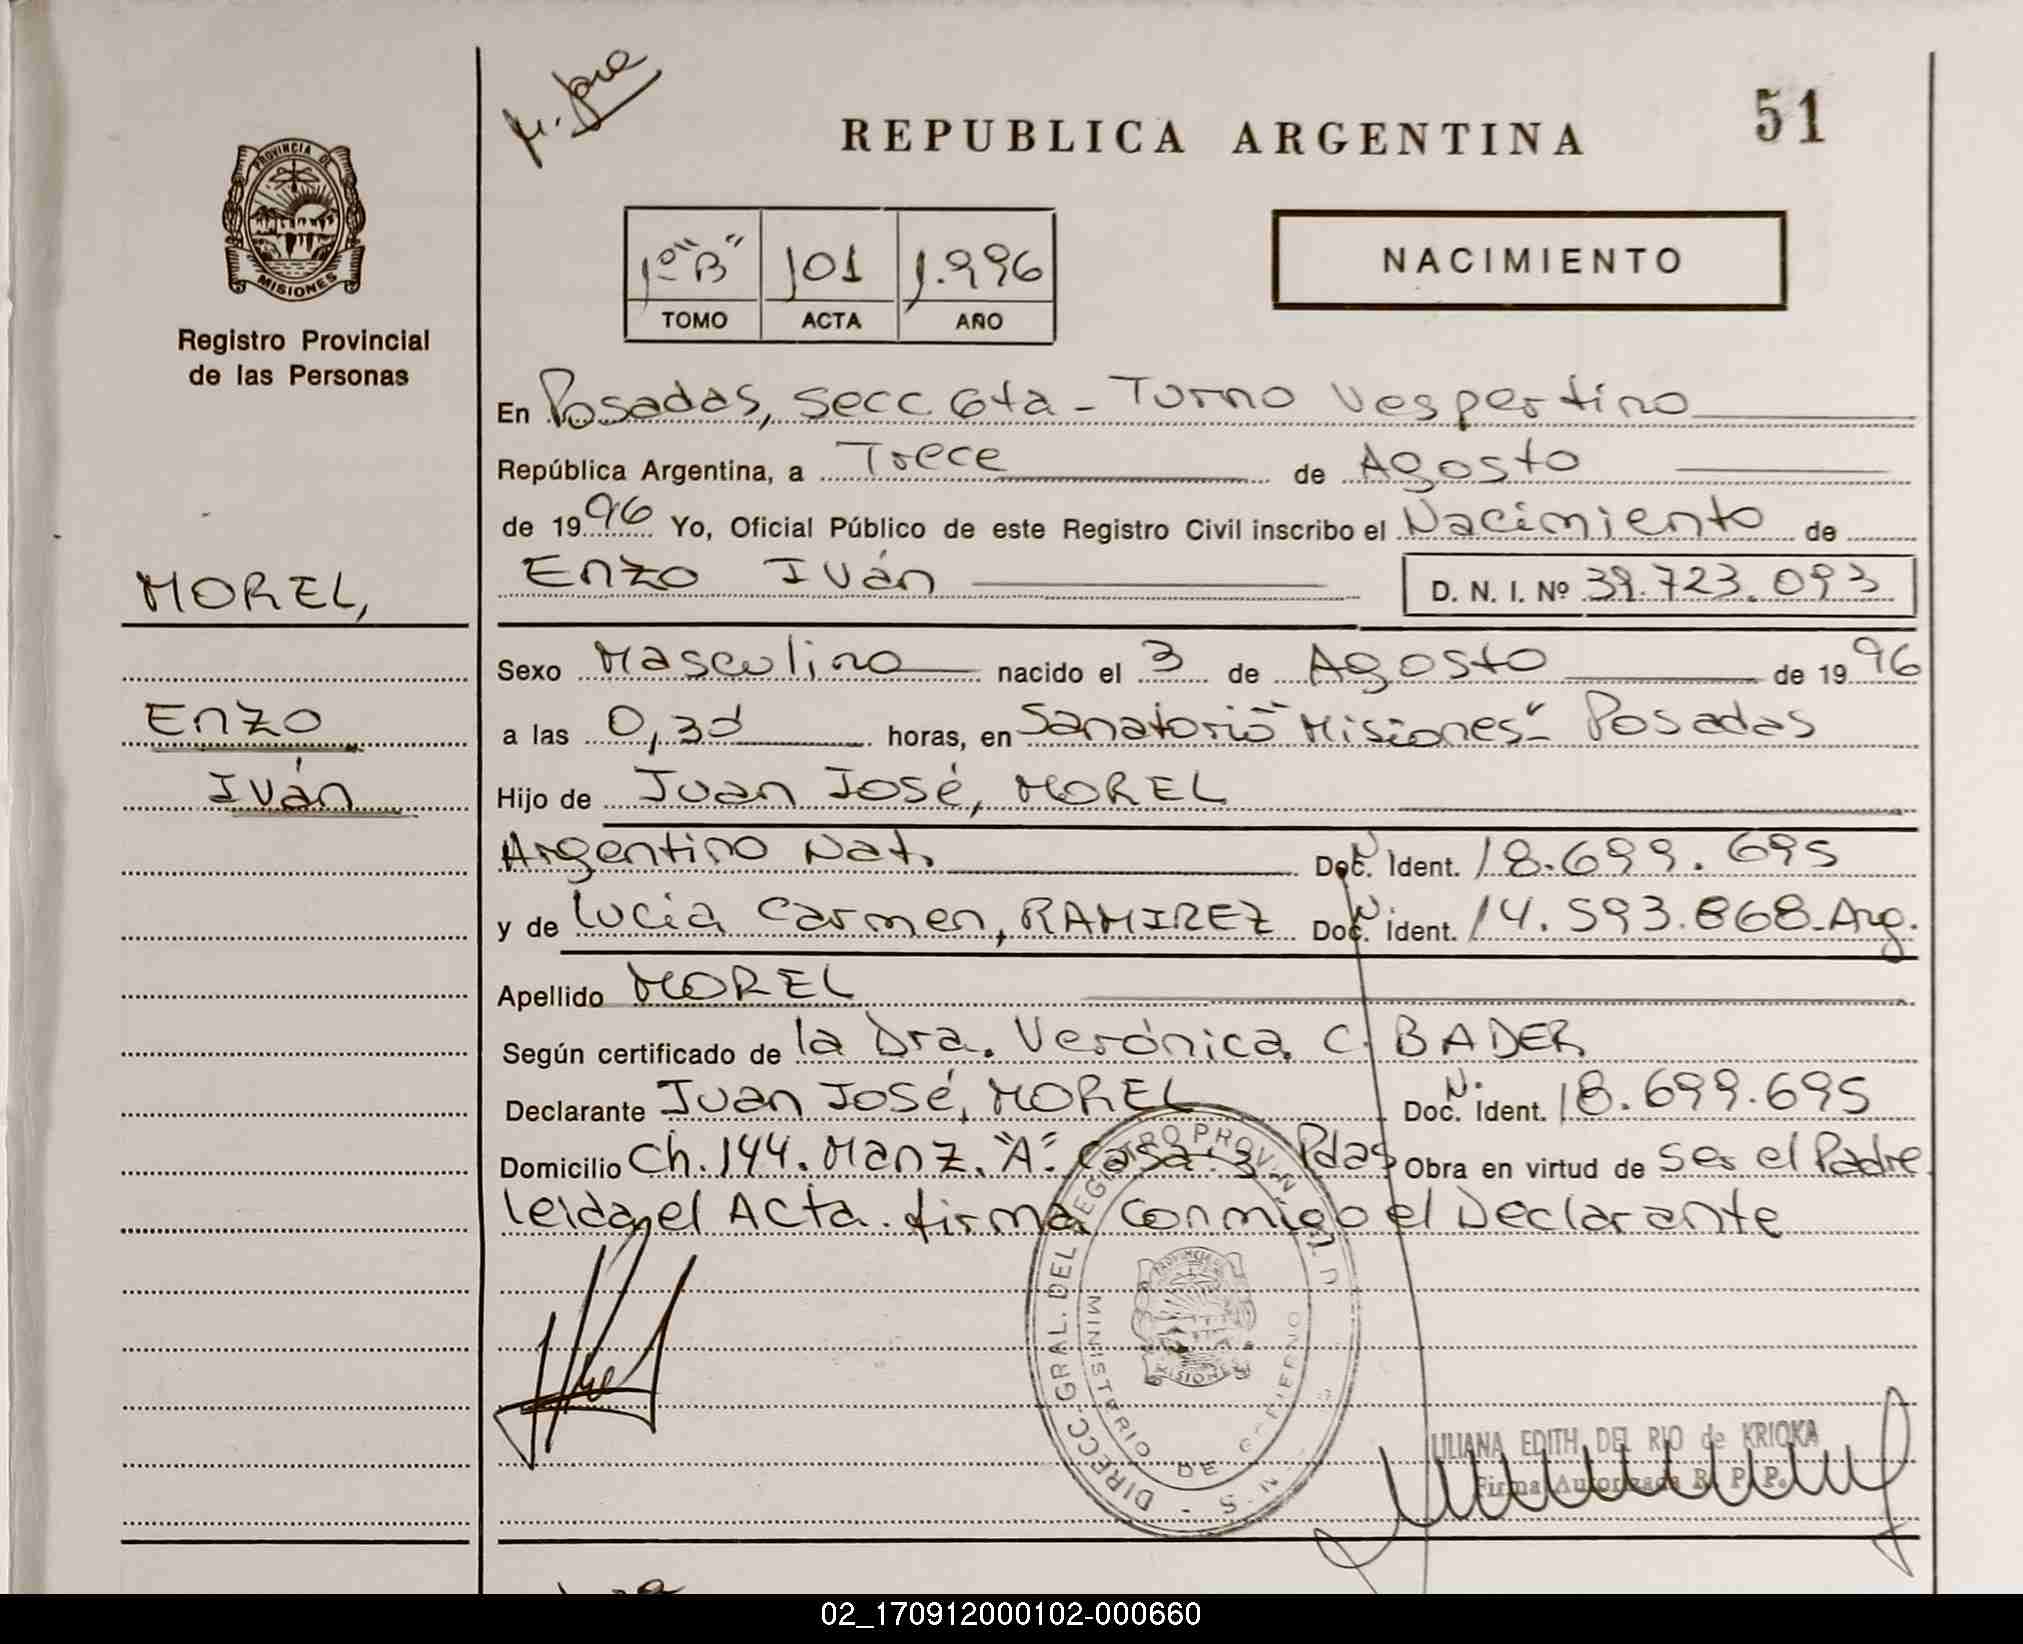 51
REPUBLICA ARGENTINA
PROVINCIA DE
MISIONES
Registro Provincial
de las Personas
1º "B" 101 1.996
TOMO ACTA AÑO
NACIMIENTO
En Posadas, secc 6ta - Turno Vespertino
República Argentina, a Trece de Agosto
de 1996 Yo, Oficial Público de este Registro Civil inscribo el Nacimiento de
Enzo Iván D. N. I. Nº 39.723.093
MOREL,
Enzo
Iván
Sexo Masculino nacido el 3 de Agosto de 1996
a las 0,30 horas, en Sanatorio "Misiones" - Posadas
Hijo de Juan José, MOREL
Argentino Nat. Doc. N. Ident. 18.699.695
y de Lucia Carmen, RAMIREZ Doc. N. ident. 14.593.868-Arg.
Apellido MOREL
Según certificado de la Dra. Verónica C. BADER
Declarante Juan José, MOREL Doc. N. Ident. 18.699.695
Domicilio Ch. 144. Manz. "A" Casa 3 Pdas Obra en virtud de ser el Padre
leida el Acta. firma conmigo el Declarante
DIRECC. GRAL. DEL REGISTRO PROVIN
MINISTERIO DE GOBIERNO
MISIONES
LILIANA EDITH DEL RIO de KRIOKA
Firma Autorizada R. P. P.
02_170912000102-000660